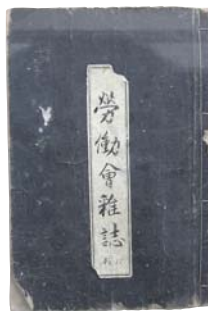 勞働會雜誌